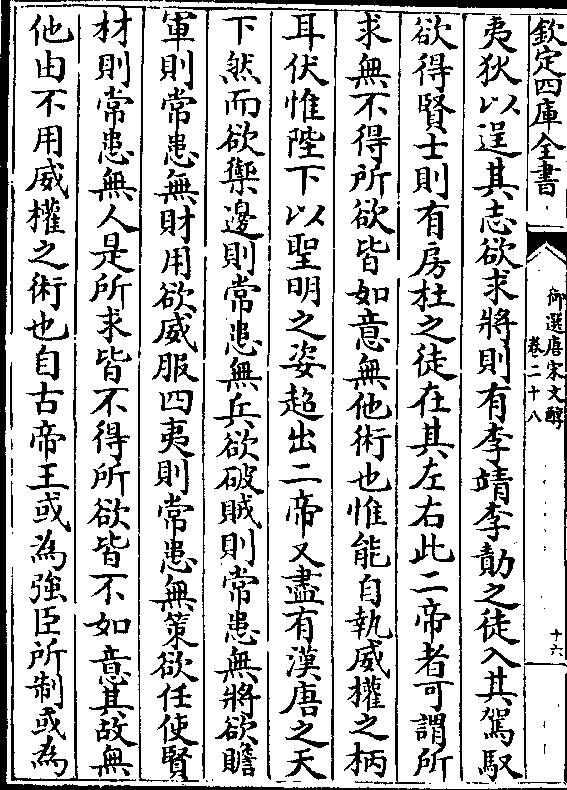 欽定四庫全書
御選唐宋文醇
卷二十八
十六
夷狄以逞其志欲求將則有李靖李勣之徒入其駕馭
欲得賢士則有房杜之徒在其左右此二帝者可謂所
求無不得所欲皆如意無他術也惟能自執威權之柄
耳伏惟陛下以聖明之姿超出二帝又盡有漢唐之天
下然而欲禦邊則常患無兵欲破賊則常患無將欲贍
軍則常患無財用欲威服四夷則常患無策欲任使賢
材則常患無人是所求皆不得所欲皆不如意其故無
他由不用威權之術也自古帝王或為強臣所制或為